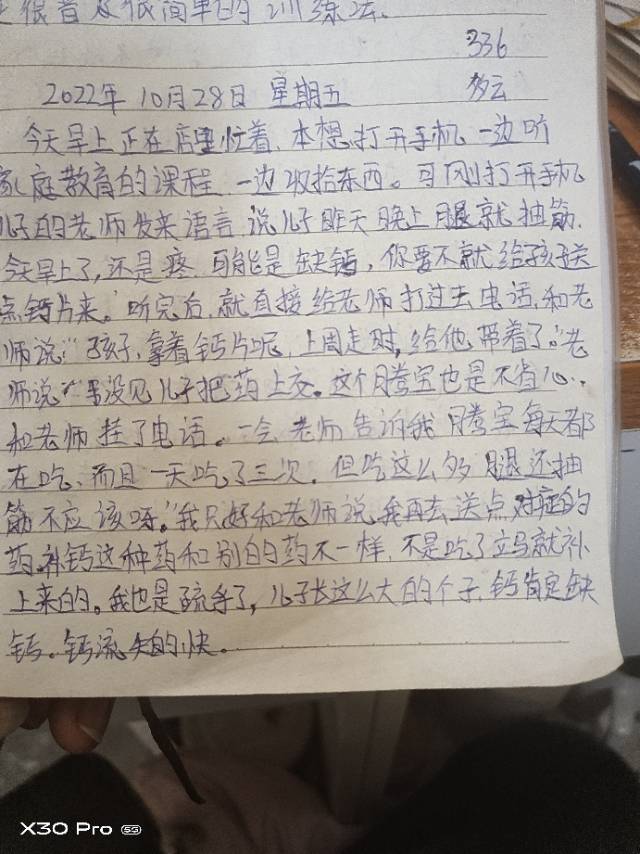 很普及很简单的训练法.
336
2022年10月28日 星期五 多云
今天早上正在店里忙着,本想打开手机一边听
家庭教育的课程 一边收拾东西。可刚打开手机
儿子的老师发来语言,说儿子昨天晚上腿就抽筋.
今天早上了,还是疼 可能是缺钙,你要不就给孩子送
点钙片来。"听完后,就直接给老师打过去电话.和老
师说:"孩子,拿着钙片呢,上周走时,给他带着了。"老
师说:"当没见儿子把药上交。这个腾宝也是不省心..
和老师挂了电话。一会老师告诉我 腾宝每天都
在吃,而且一天吃了三次.但吃这么多 腿还抽
筋 不应该呀。"我只好和老师说 我再去送点对症的
药.补钙这种药和别的药不一样.不是吃了立马就补
上来的。我也是疏乎了,儿子长这么大的个子,钙肯定缺
钙.钙流失的快.
X30 Pro 5G